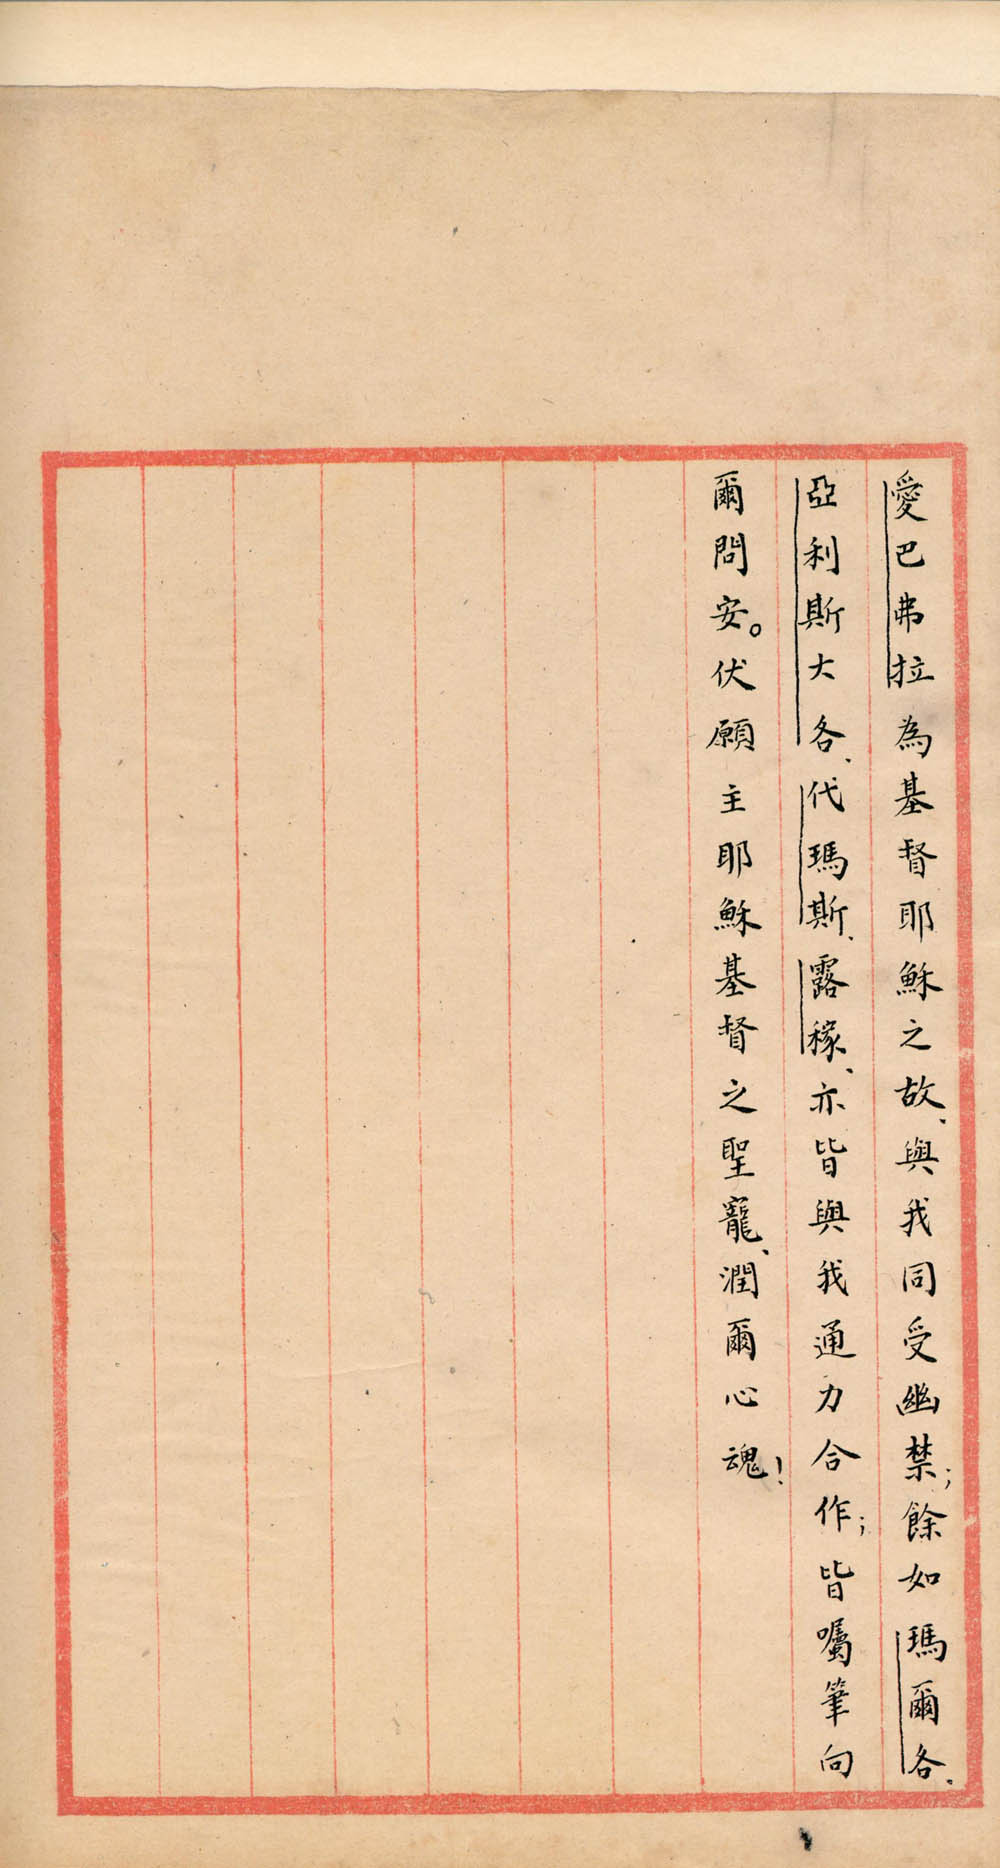 愛巴弗拉為基督耶穌之故、與我同受幽禁;餘如瑪爾各、
亞利斯大各、代瑪斯、露稼、亦皆與我通力合作;皆囑筆向
爾問安。伏願主耶穌基督之聖寵、潤爾心魂!